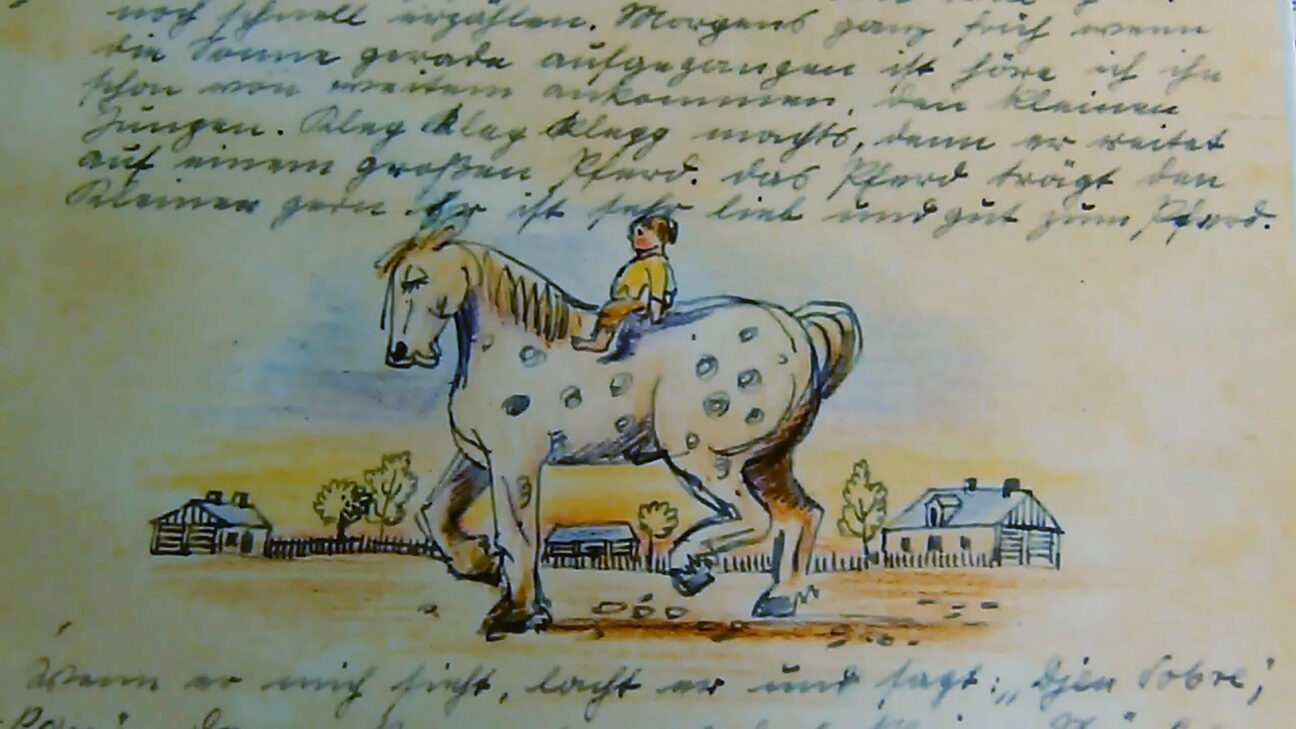 noch schnell erzählen. Morgens ganz früh wenn
die Sonne gerade aufgegangen ist höre ich ihn
schon von weitem ankommen, den kleinen
Jungen. Klag klag klagg machts, denn er reitet
auf einem großen Pferd. das Pferd trägt den
Kleinen gern. Er ist sehr lieb und gut zum Pferd.
Wenn er mich sieht, lacht er und sagt: „Djen Dobre,